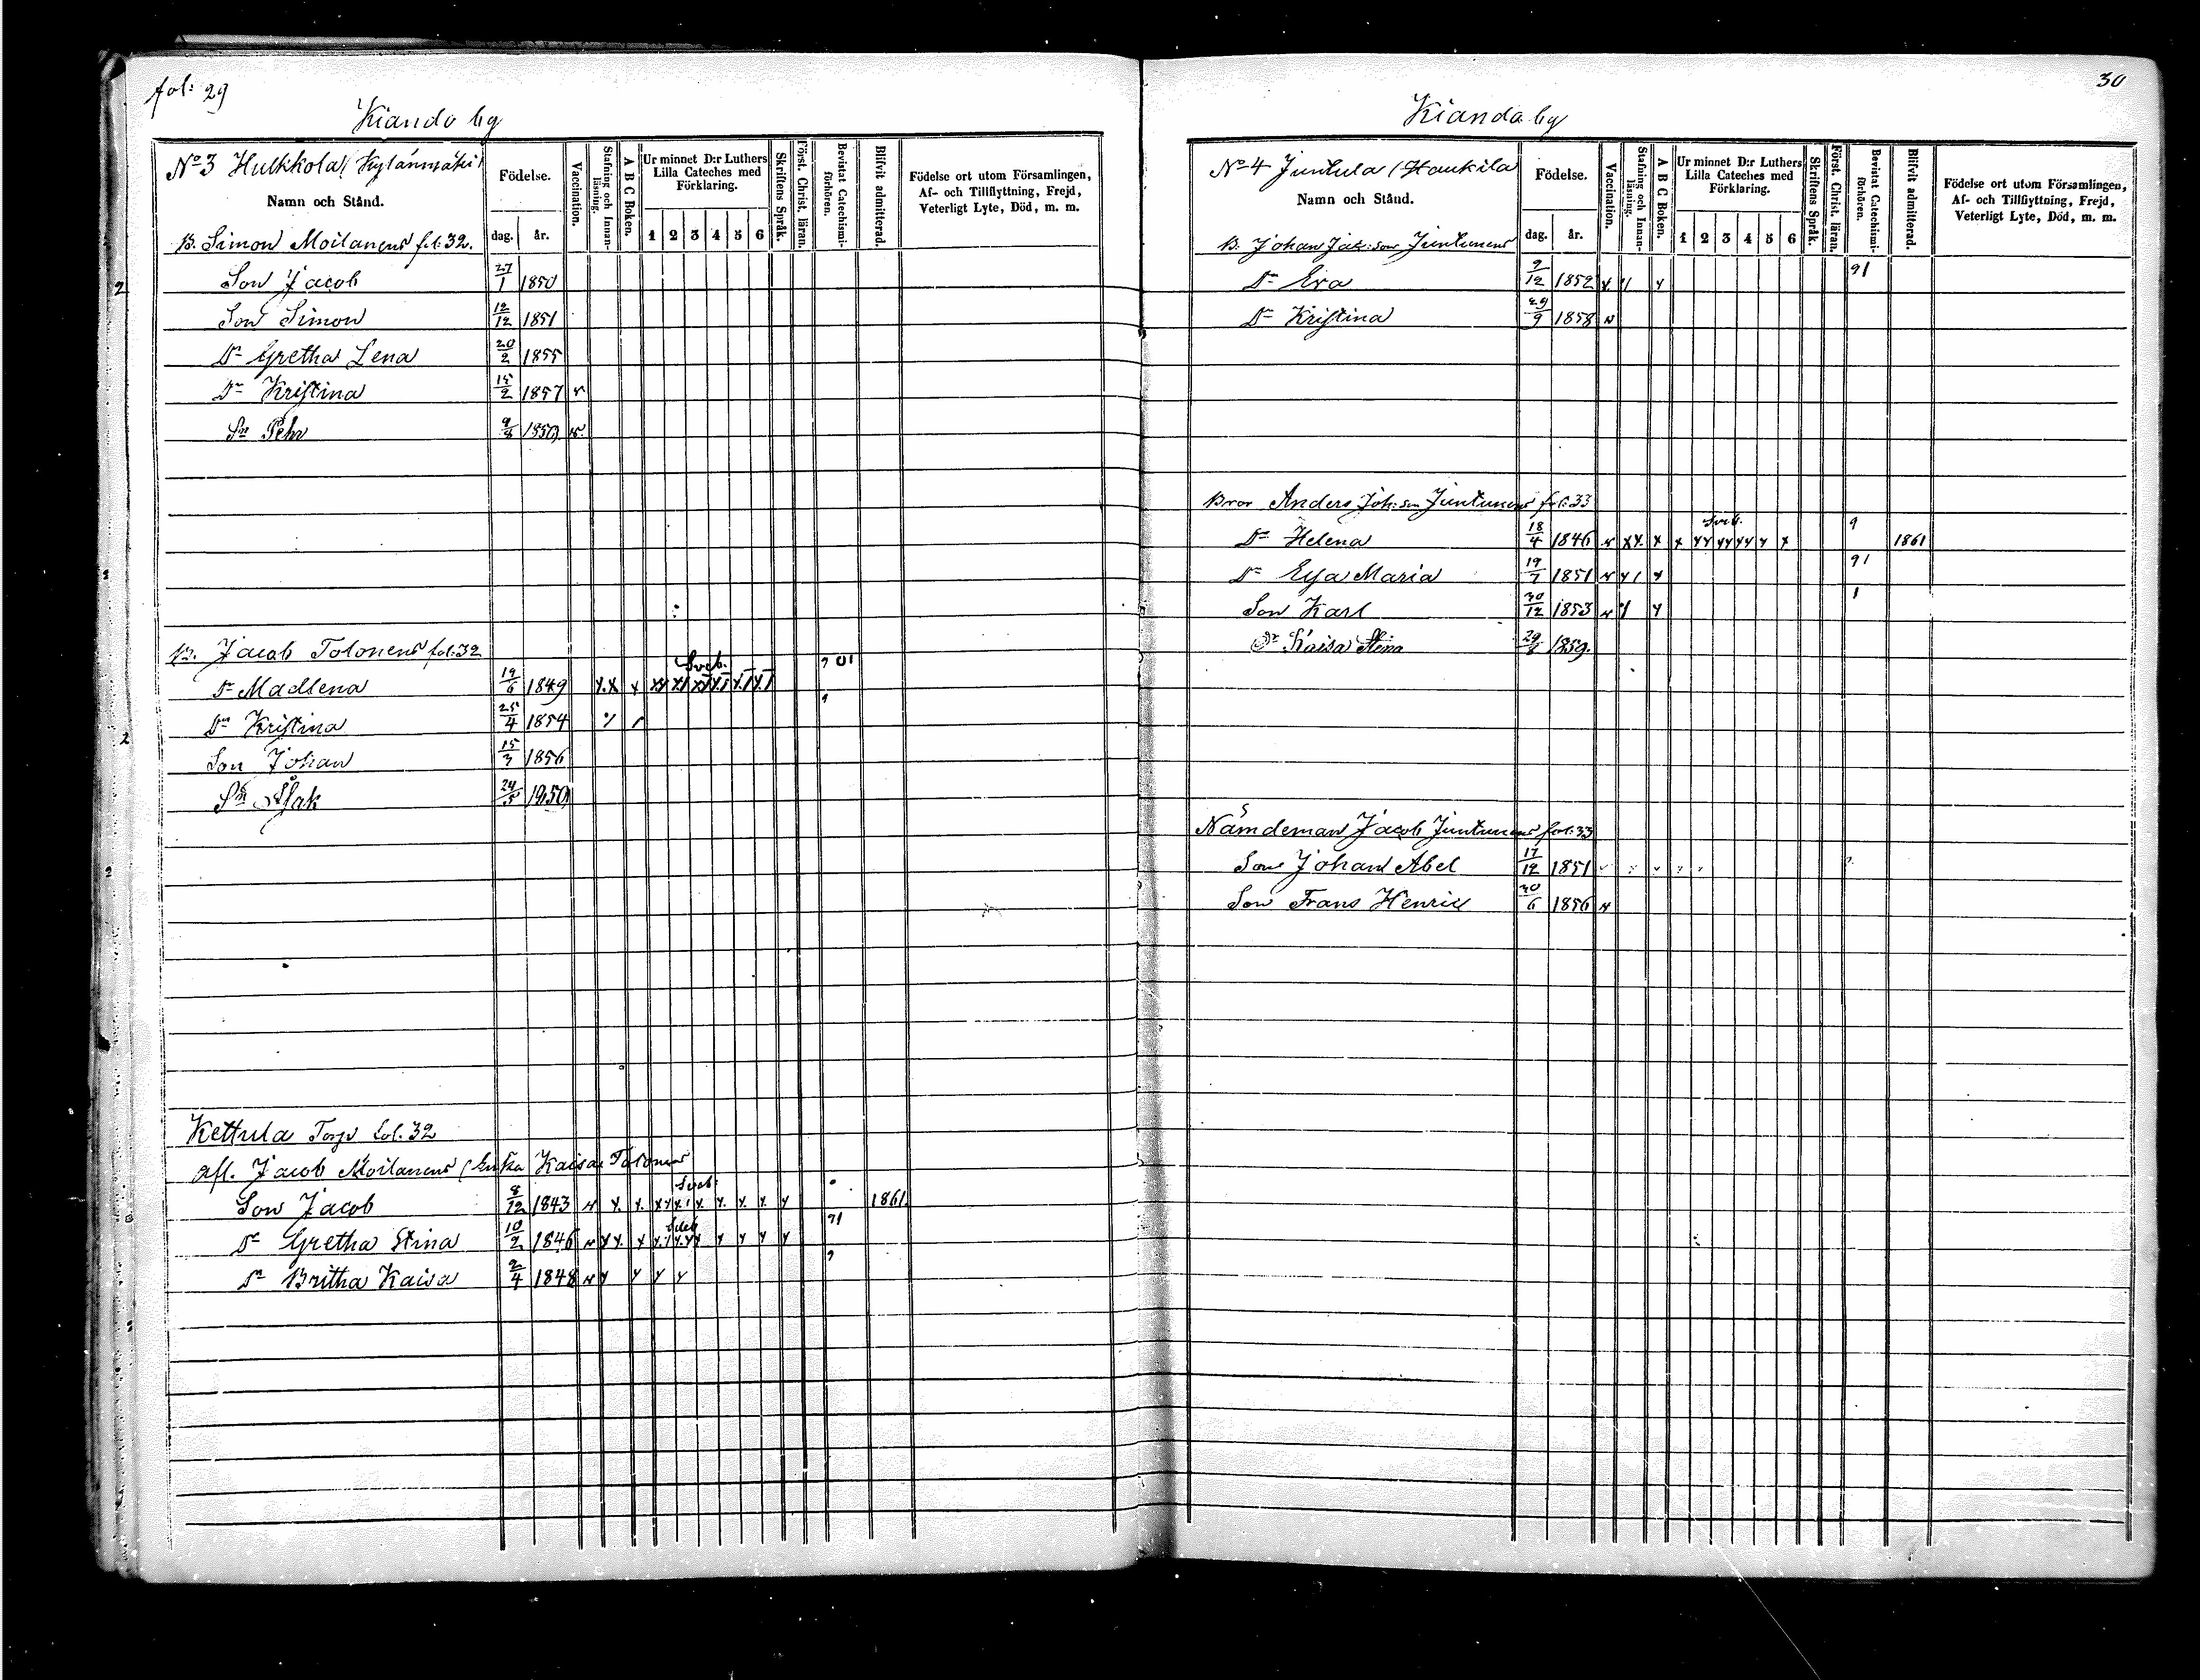 fol: 29
Kianda by
No 3 Hulkkola / Kylänmäki /
Namn och Stånd.
Födelse.
dag. år.
Vaccination.
Stafning och Innanläsning.
A B C Boken.
Ur minnet D:r Luthers Lilla Cateches med Förklaring.
1 2 3 4 5 6
Skriftens Språk.
Först. Christ. läran.
Bevistat Catechismiförhören.
Blifvit admitterad.
Födelse ort utom Församlingen, Af- och Tillflyttning, Frejd, Veterligt Lyte, Död, m. m.
B. Simon Moilanens fol: 32.
Son Jacob 27/1 1850
Son Simon 12/12 1851
Dr Gretha Lena 20/2 1855
Dr Kristina 15/2 1857 v
Sn Pehr 1859 v.
B. Jacob Tolonens fol: 32
Dr Madlena 19/6 1849
Dr Kristina 25/4 1854
Son Johan 15/3 1856
Sn Isak 24/5
Kettula Torp fol. 32
Afl. Jacob Moilanens / Enka Kaisa Tolonens
Son Jacob 8/12 1843 1861.
Dr Gretha Stina 10/2 1846
Dr Britha Kaisa 2/4 1848
30
Kianda by
No 4 Juntula / Haukila
Namn och Stånd.
Födelse.
dag. år.
Vaccination.
Stafning och Innanläsning.
A B C Boken.
Ur minnet D:r Luthers Lilla Cateches med Förklaring.
1 2 3 4 5 6
Skriftens Språk.
Först. Christ. läran.
Bevistat Catechismiförhören.
Blifvit admitterad.
Födelse ort utom Församlingen, Af- och Tillflyttning, Frejd, Veterligt Lyte, Död, m. m.
B. Johan Jak: son Juntunens
Dr Eva 9/12 1852 91
Dr Kristina 29/9 1858
Bror Anders Joh: son Juntunens fol: 33
Dr Helena 18/4 1846 9 1861
Dr Eva Maria 19/7 1851 91
Son Karl 30/12 1853 1
Dr Kaisa Stina 1859.
Nämdeman Jacob Juntunens fol: 33
Son Johan Abel 17/12 1851
Son Frans Henric 30/6 1856